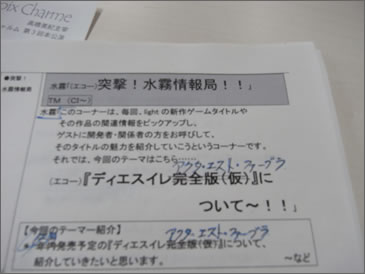 oix Charme
高橋美紀主宰
ャルム 第3回本公演
●突撃!
水霧情報局
水霧「(エコー)突撃!水霧情報局!!」
TM (CI~)
水霧「このコーナーは、毎回、lightの新作ゲームタイトルや
その作品の関連情報をピックアップし、
ゲストに開発者・関係者の方をお呼びして、
そのタイトルの魅力を紹介していこうというコーナーです。
それでは、今回のテーマはこちら……
アクタ・エスト・ファーブラ
(エコー)『ディエスイレ完全版(仮)』に
ついて~!!」
【今回のテーマー紹介】
アクタ・エスト・ファーブラ
・年内発売予定の『ディエスイレ完全版(仮)』について、
紹介していきたいと思います。
~など